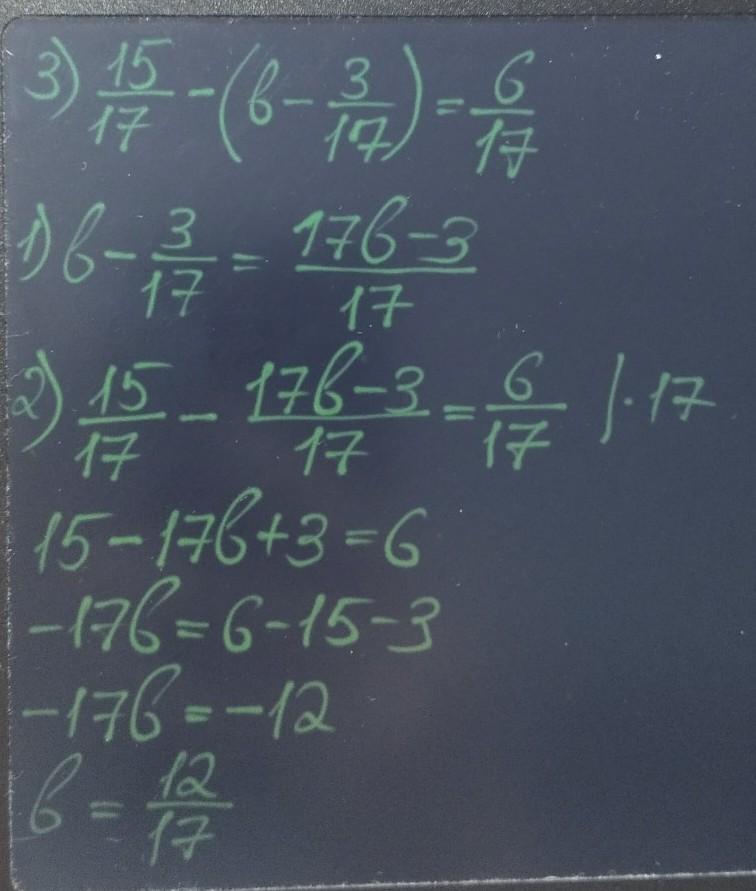 3) 15/17 - (b - 3/17) = 6/17
1) b - 3/17 = 17b-3/17
2) 15/17 - 17b-3/17 = 6/17 |·17
15-17b+3=6
-17b=6-15-3
-17b=-12
b = 12/17